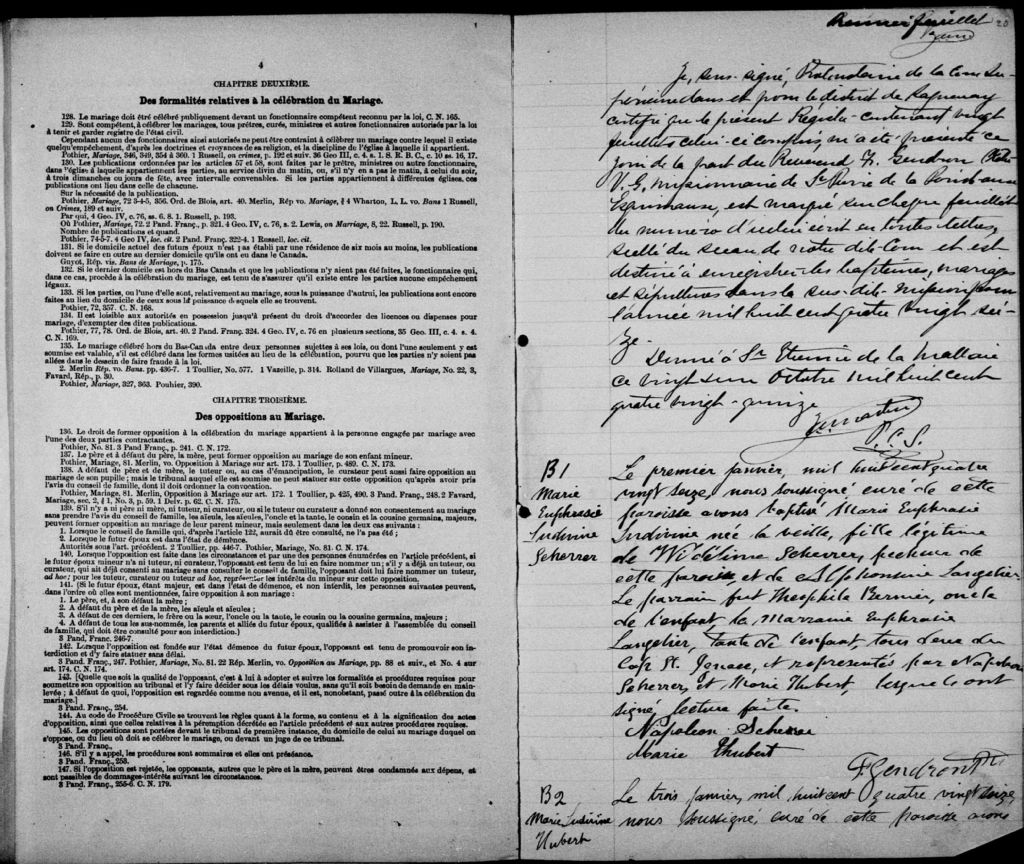 4
CHAPITRE DEUXIÈME.
Des formalités relatives à la célébration du Mariage.
128. Le mariage doit être célébré publiquement devant un fonctionnaire compétent reconnu par la loi, C. N. 165.
129. Sont compétent, à célébrer les mariages, tous prêtres, curés, ministres et autres fonctionnaires autorisés par la loi
à tenir et garder registre de l'état civil.
Cependant aucun des fonctionnaires ainsi autorisés ne peut être contraint à célébrer un mariage contre lequel il existe
quelqu'empêchement, d'après les doctrines et croyances de sa religion, et la discipline de l'église à laquelle il appartient.
Pothier, Mariage, 346, 349, 354 & 360. 1 Russell, on crimes, p. 192 et suiv. 36 Geo III, c. 4. s. 1. S. R. B. C., c. 20 ss. 16, 17.
130. Les publications ordonnées par les articles 57 et 58, sont faites par le prêtre, ministre ou autre fonctionnaire,
dans l'église à laquelle appartiennent les parties, au service divin du matin, ou, s'il n'y en a pas le matin, à celui du soir,
à trois dimanches ou jours de fête, avec intervalle convenables. Si les parties appartiennent à différentes églises, ces
publications ont lieu dans celle de chacune.
Sur la nécessité de la publication.
Pothier, Mariage, 72 3-4-5, 356. Ord. de Blois, art. 40. Merlin, Rép vo. Mariage, § 4 Wharton, L. L. vo. Bans 1 Russell,
on Crimes, 189 et suiv.
Par qui, 4 Geo. IV, c. 76, ss. 6. 8. 1. Russell, p. 193.
Où Pothier, Mariage, 72. 2 Pand. Franç., p. 321. 4 Geo IV, c. 76, s. 2. Lewis, on Marriage, 8, 22. Russell, p. 190.
Nombre de publications et quand.
Pothier, 74-5-7. 4 Geo IV, loc. cit. 2 Pand. Franç. 322-4. 1 Russell, loc. cit.
131. Si le domicile actuel des futurs époux n'est pas établi par une résidence de six mois au moins, les publications
doivent se faire en outre au dernier domicile qu'ils ont eu dans le Canada.
Guyot, Rép. vis. Bans de Mariage, p. 175.
132. Si le dernier domicile est hors du Bas Canada et que les publications n'y aient pas été faites, le fonctionnaire qui,
dans ce cas, procède à la célébration du mariage, est tenu de s'assurer qu'il existe entre les parties aucune empêchement
légaux.
133. Si les parties, ou l'une d'elle sont, relativement au mariage, sous la puissance d'autrui, les publications sont encore
faites au lieu du domicile de ceux sous la puissance desquels elle se trouvent.
Pothier, 72, 357. C. N. 168.
134. Il est loisible aux autorités en possession jusqu'à présent du droit d'accorder des licences ou dispenses pour
mariage, d'exempter des dites publications.
Pothier, 77, 78. Ord. de Blois, art. 40. 2 Pand. Franç. 324. 4 Geo. IV, c. 76 en plusieurs sections, 35 Geo. III, c. 4. s. 4.
C. N. 169.
135. Le mariage célébré hors du Bas-Canada entre deux personnes sujettes à ses lois, ou dont l'une seulement y est
soumise est valable, s'il est célébré dans les formes usitées au lieu de la célébration, pourvu que les parties n'y soient pas
allées dans le dessein de faire fraude à la loi.
2. Merlin Rép. vo. Bans. pp. 436-7. 1 Toullier, No. 577. 1 Vazeille, p. 314. Rolland de Villargues, Mariage, No. 22, 3,
Favard, Rép., p. 30.
Pothier, Mariage, 327, 363. Pouhier, 390.
CHAPITRE TROISIÈME.
Des oppositions au Mariage.
136. Le droit de former opposition à la célébration du mariage appartient à la personne engagée par mariage avec
l'une des deux parties contractantes.
Pothier, No. 81. 3 Pand Franç., p. 241. C. N. 172.
137. Le père et à défaut du père, la mère, peut former opposition au mariage de son enfant mineur.
Pothier, Mariage, 81. Merlin, vo. Opposition à Mariage sur art. 173. 1 Toullier, p. 489. C. N. 173.
138. A défaut de père et de mère, le tuteur ou, au cas d'émancipation, le curateur peut aussi faire opposition au
mariage de son pupille; mais le tribunal auquel elle est soumise ne peut statuer sur cette opposition qu'après avoir pris
l'avis du conseil de famille, dont il doit ordonner la convocation.
Pothier, Mariage, 81. Merlin, Opposition à Mariage sur art. 172. 1 Toullier, p. 425, 490. 3 Pand. Franç., 248. 2 Favard,
Mariage, sec. 2, § 1, No. 3, p. 59. 1 Delv. p. 62. C. N. 175.
139. S'il n'y a ni père ni mère, ni tuteur, ni curateur, ou si le tuteur ou curateur a donné son consentement au mariage
sans prendre l'avis du conseil de famille, les aïeuls, les aïeules, l'oncle et la tante, le cousin et la cousine germains, majeurs,
peuvent former opposition au mariage de leur parent mineur, mais seulement dans les deux cas suivants :
1. Lorsque le conseil de famille qui, d'après l'article 122, aurait dû être consulté, ne l'a pas été ;
2. Lorsque le futur époux est dans l'état de démence.
Autorités sous l'art. précédent. 2 Toullier, pp. 446-7. Pothier, Mariage, No. 81. C N. 174.
140. Lorsque l'opposition est faite dans les circonstances et par une des personnes énumérées en l'article précédent, si
le futur époux mineur n'a ni tuteur, ni curateur, l'opposant est tenu de lui en faire nommer un ; s'il y a déjà un tuteur, ou
curateur, qui ait déjà consenti au mariage sans consulter le conseil de famille, l'opposant doit lui faire nommer un tuteur,
ad hoc ; pour les tuteur, curateur ou tuteur ad hoc, représenter les intérêts du mineur sur cette opposition.
141. (Si le futur époux, étant majeur, est dans l'état de démence, et non interdit, les personnes suivantes peuvent,
dans l'ordre où elles sont mentionnées, faire opposition à son mariage :
1. Le père, et, à son défaut la mère ;
2. A défaut du père et de la mère, les aïeuls et aïeules ;
3. A défaut de ces derniers, le frère ou la sœur, l'oncle ou la tante, le cousin ou la cousine germains, majeurs ;
4. A défaut de tous les sus-nommés, les parents et alliés du futur époux, qualifiés à assister à l'assemblée du conseil
de famille, qui doit être consulté pour son interdiction.]
3 Pand. Franc. 246-7.
142. Lorsque l'opposition est fondée sur l'état démence du futur époux, l'opposant est tenu de promouvoir son in-
terdiction et d'y faire statuer sans délai.
3 Pand. Franç., 247. Pothier, Mariage, No. 81. 22 Rép. Merlin, vo. Opposition au Mariage, pp. 88 et suiv., et No. 4 sur
art. 174. C. N. 174.
143. [Quelle que soit la qualité de l'opposant, c'est à lui à adopter et suivre les formalités et procédures requises pour
soumettre son opposition au tribunal et l'y faire décider sous les délais voulus, sans qu'il soit besoin de demande en main-
levée ; à défaut de quoi, l'opposition est regardée comme nou avenue, et il est, nonobstant, passé outre à la célébration du
mariage.]
3 Pand. Franç., 254.
144. Au code de Procédure Civile se trouvent les règles quant à la forme, au contenu et à la signification des actes
d'opposition, ainsi que celles relatives à la péremption décrétée en l'article précédent et aux autres procédures requises.
145. Les oppositions sont portées devant le tribunal de première instance, du domicile de celui au mariage duquel on
s'oppose, ou du lieu où doit se célébrer le mariage, ou devant un juge de ce tribunal.
3 Pand. Franç.,
146. S'il y a appel, les procédures sont sommaires et elles ont préséance.
3 Pand. Franç., 258.
147. Si l'opposition est rejetée, les opposants, autres que le père et la mère, peuvent être condamnés aux dépens, et
sont passibles de dommages-intérêts suivant les circonstances.
3 Pand. Franç., 255-6. C. N. 179.
Premier feuillet
20
Je, sous-signé, Protonotaire de la Cour Su-
périeure dans et pour le district de Saguenay
certifie que le présent Régistre contenant vingt
feuillets celui-ci compris m'a été présenté ce
jour de la part du Révérend F. Gendron Ptre
V. G. missionnaire de St Pierre de la Pointe aux
Esquimaux, est marqué sur chaque feuillet
du numéro d'icelui écrit en toutes lettres,
scellé du sceau de notre dite Cour et est
destiné à enregistrer les baptêmes, mariages
et sépultures dans la sus-dite mission pour
l'année mil huit cent quatre vingt sei-
ze.
Donné à St Etienne de la Malbaie
ce vingt un Octobre mil huit cent
quatre vingt-quinze
P.C.S.
B1
Marie
Euphrasie
Ludivine
Scherrer
Le premier janvier, mil huit cent quatre
vingt seize, nous soussigné curé de cette
paroisse avons baptisé Marie Euphrasie
Ludivine née la veille, fille légitime
de Widelime Scherrer, pecheur de
cette paroisse et de Alphonsine Langelier.
Le parrain fut Theophile Bernier, oncle
de l'enfant la Marraine Euphrasie
Langelier, tante de l'enfant, tous deux du
Cap St. Ignace, et représentés par Napoleon
Scherrer, et Marie Hubert, lesquels ont
signé lecture faite.
Napoleon Scherrer
Marie Hubert
F. Gendron Ptr
B2
Marie Ludivine
Hubert
Le trois janvier, mil huit cent quatre vingt seize,
nous soussigné, curé de cette paroisse avons